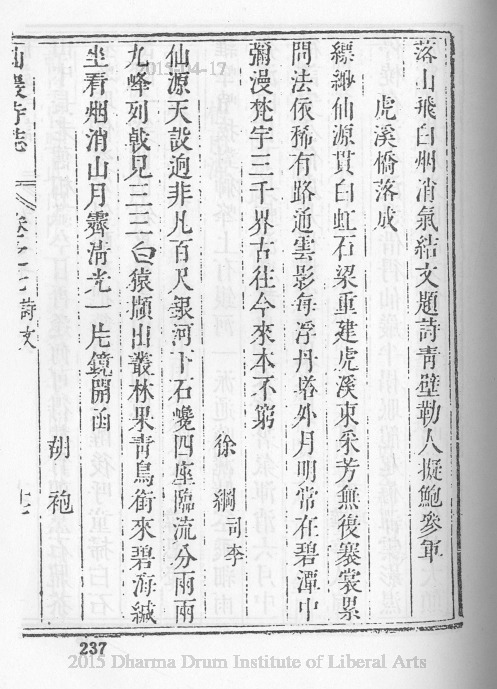 落山飛白烟消氣結文題詩青壁勒人擬鮑參軍
虎溪橋落成
縹緲仙源貫白虹石梁重建虎溪東采芳無復褰裳累
問法依稀有路通雲影每浮丹嶂外月明常在碧潭中
彌漫梵宇三千界古往今來本不窮
徐綱司李
仙源天設逈非凡百尺銀河下石巉四座臨流分雨雨
九峰列戟見三三白猿擷出叢林果青鳥銜來碧海緘
坐看烟消山月霽清光一片鏡開函
胡袍
仙巖寺誌
卷之七詩文
237
2015-04-17
2015 Dharma Drum Institute of Liberal Arts